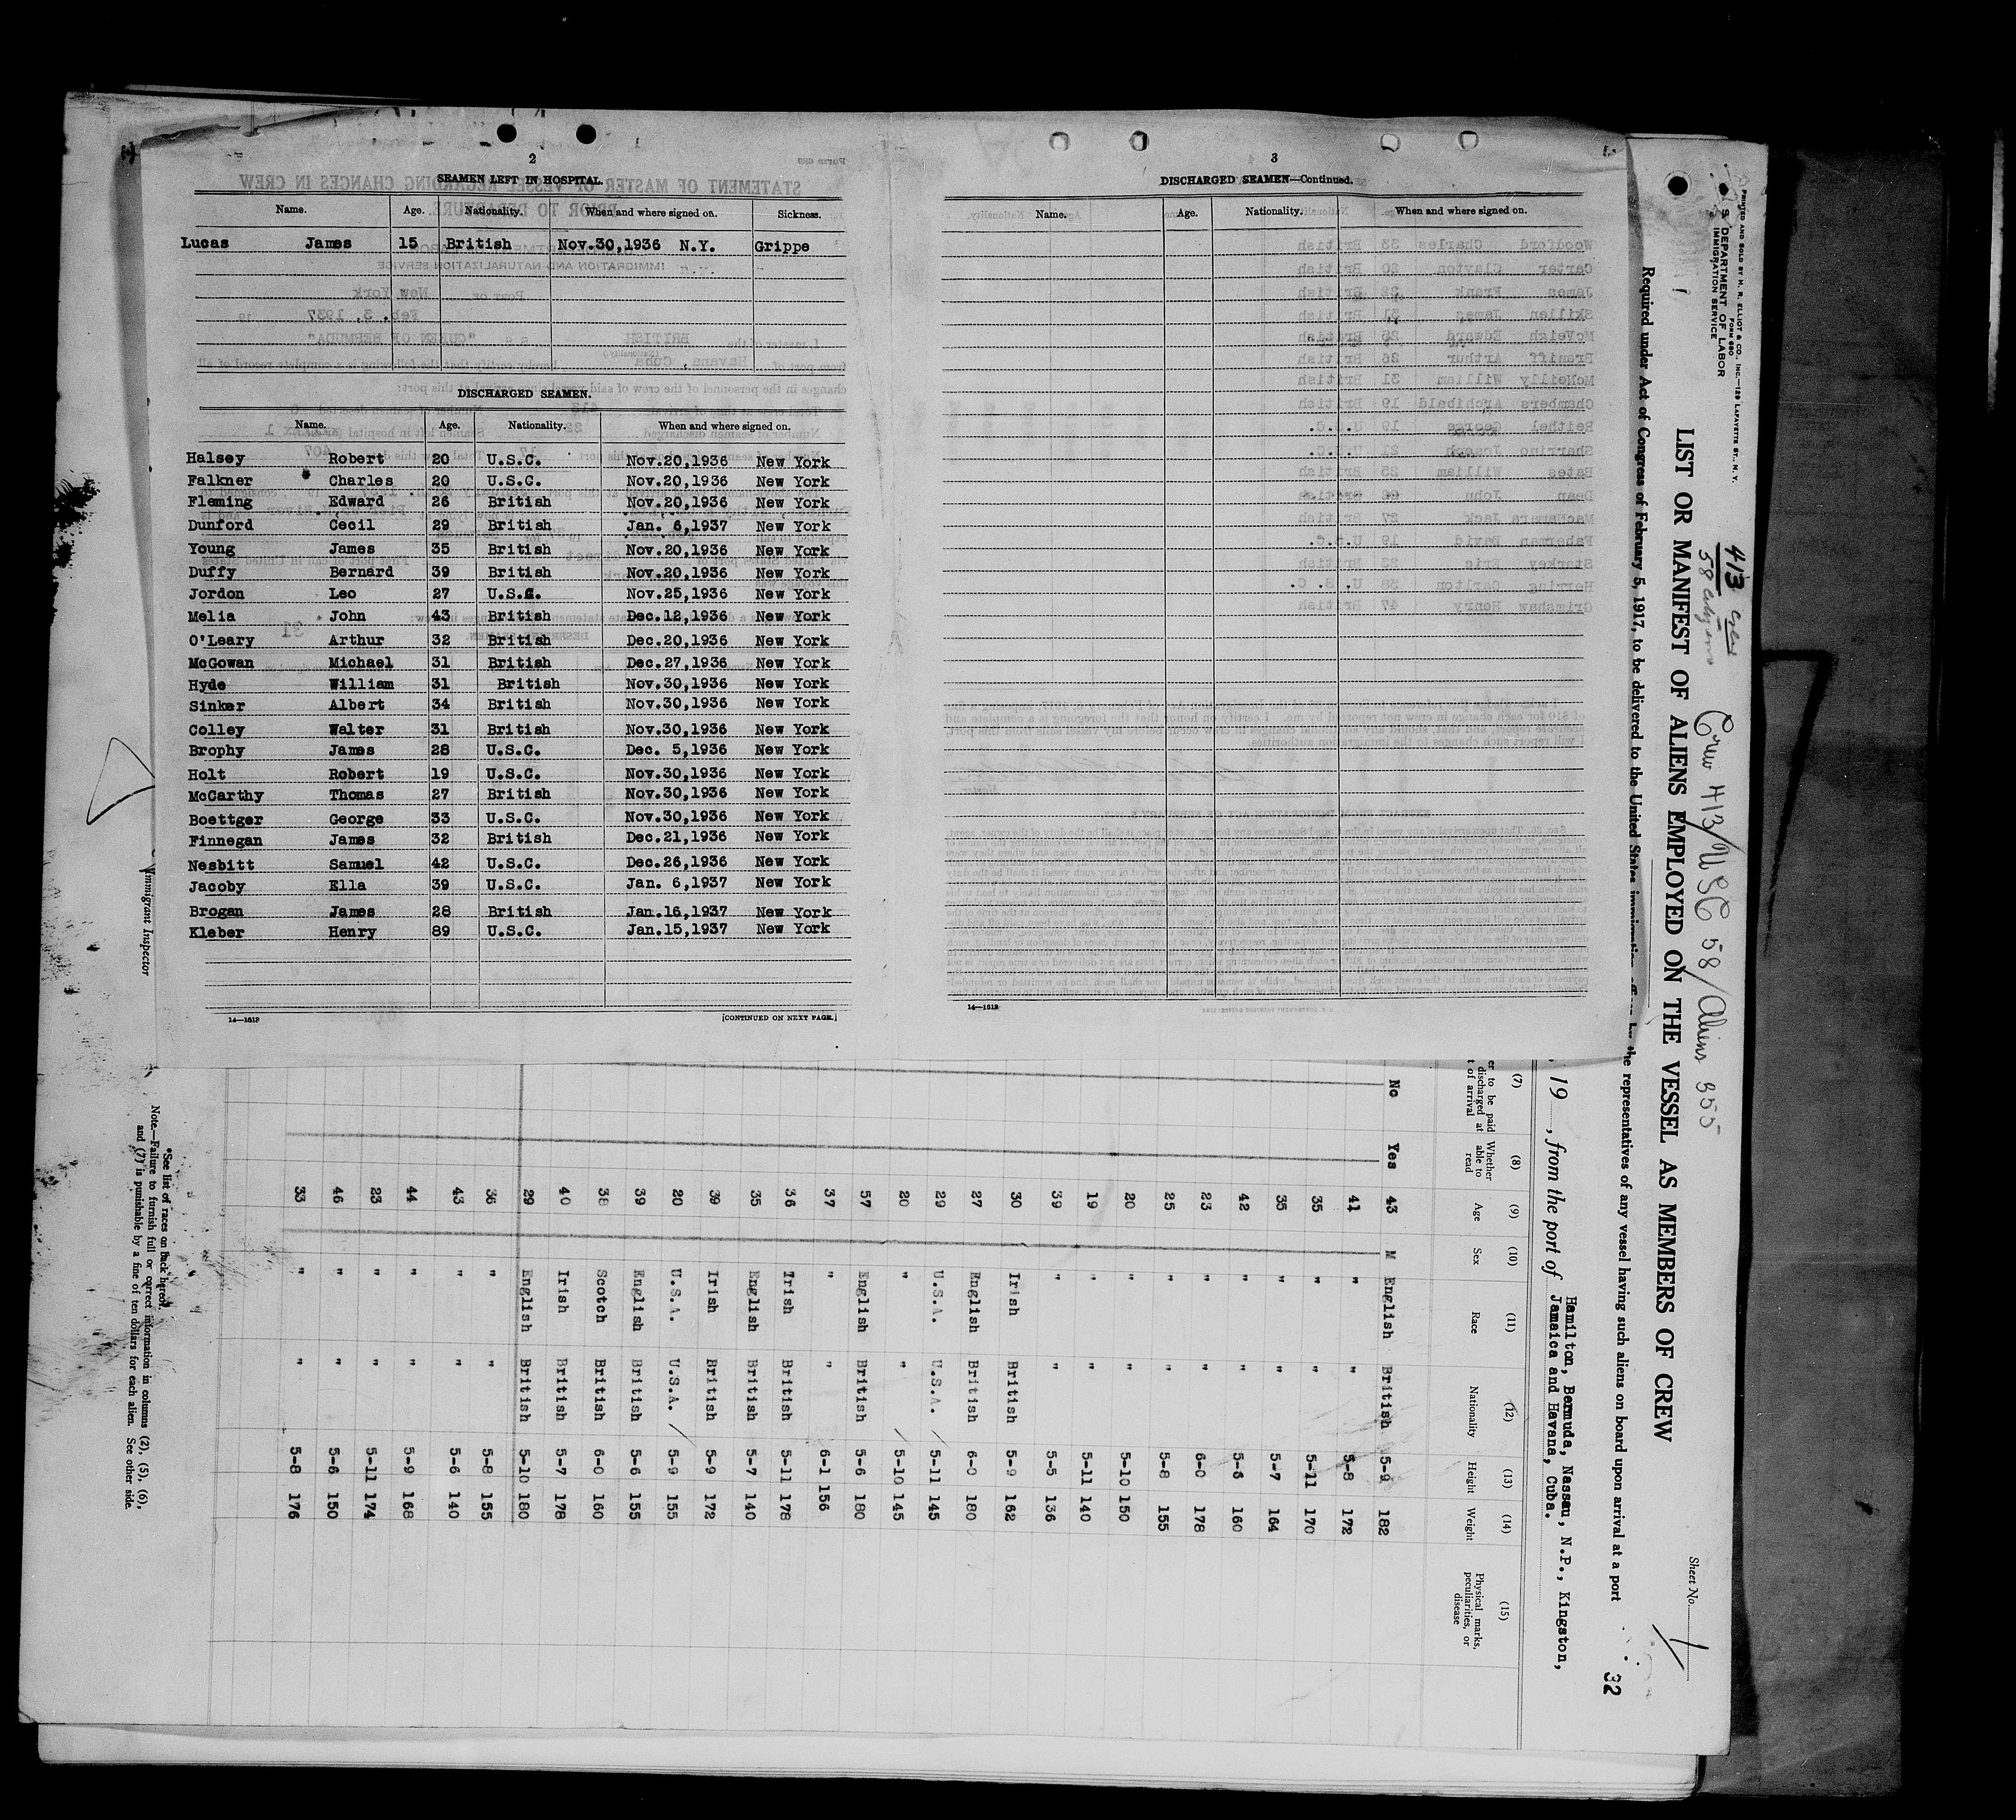 2
SEAMEN LEFT IN HOSPITAL.
Name. Age. Nationality. When and where signed on. Sickness.
Lucas James 15 British Nov.30,1936 N.Y. Grippe
DISCHARGED SEAMEN.
Name. Age. Nationality. When and where signed on.
Halsey Robert 20 U.S.C. Nov.20,1936 New York
Falkner Charles 20 U.S.C. Nov.20,1936 New York
Fleming Edward 26 British Nov.20,1936 New York
Dunford Cecil 29 British Jan. 6,1937 New York
Young James 35 British Nov.20,1936 New York
Duffy Bernard 39 British Nov.20,1936 New York
Jordon Leo 27 U.S.C. Nov.25,1936 New York
Melia John 43 British Dec.12,1936 New York
O'Leary Arthur 32 British Dec.20,1936 New York
McGowan Michael 31 British Dec.27,1936 New York
Hyde William 31 British Nov.30,1936 New York
Sinker Albert 34 British Nov.30,1936 New York
Colley Walter 31 British Nov.30,1936 New York
Brophy James 28 U.S.C. Dec. 5,1936 New York
Holt Robert 19 U.S.C. Nov.30,1936 New York
McCarthy Thomas 27 British Nov.30,1936 New York
Boettger George 33 U.S.C. Nov.30,1936 New York
Finnegan James 32 British Dec.21,1936 New York
Nesbitt Samuel 42 U.S.C. Dec.26,1936 New York
Jacoby Ella 39 U.S.C. Jan. 6,1937 New York
Brogan James 28 British Jan.16,1937 New York
Kleber Henry 89 U.S.C. Jan.15,1937 New York
14—1612 [CONTINUED ON NEXT PAGE.]
3
DISCHARGED SEAMEN—Continued.
Name. Age. Nationality. When and where signed on.
14—1612
PRINTED AND SOLD BY H. R. ELLIOT & CO., INC.—129 LAFAYETTE ST., N. Y.
FORM 680
U. S. DEPARTMENT OF LABOR
IMMIGRATION SERVICE
413 crew
Crew 413/USC 58/Aliens 355
Sheet No. 1
LIST OR MANIFEST OF ALIENS EMPLOYED ON THE VESSEL AS MEMBERS OF CREW
Required under Act of Congress of February 5, 1917, to be delivered to the United States immigration the representatives of any vessel having such aliens on board upon arrival at a port
32
Hamilton, Bermuda, Nassau, N.P., Kingston,
19 , from the port of Jamaica and Havana, Cuba.
(7) (8) (9) (10) (11) (12) (13) (14) (15)
er to be paid discharged at t of arrival
Whether able to read
Age Sex Race Nationality Height Weight
Physical marks, peculiarities, or disease
No Yes 43 M English British 5-9 182
41 " " 5-8 172
35 " " 5-11 170
35 " " 5-7 164
42 " " 5-6 160
23 " " 6-0 178
25 " " 5-8 155
20 " " 5-10 150
19 " " 5-11 140
39 " " 5-5 136
30 Irish British 5-9 162
27 English British 6-0 180
29 U.S.A. U.S.A. 5-11 145
20 " " 5-10 145
57 English British 5-6 180
37 " " 6-1 156
36 Irish British 5-11 178
35 English British 5-7 140
39 Irish British 5-9 172
20 U.S.A. U.S.A. 5-9 155
39 English British 5-6 155
38 Scotch British 6-0 160
40 Irish British 5-7 178
29 English British 5-10 180
36 " " 5-8 155
43 " " 5-6 140
44 " " 5-9 168
23 " " 5-11 174
46 " " 5-6 150
33 " " 5-8 176
Immigrant Inspector
*See list of races on back hereof.
Note.—Failure to furnish full or correct information in columns (2), (5), (6),
and (7) is punishable by a fine of ten dollars for each alien. See other side.